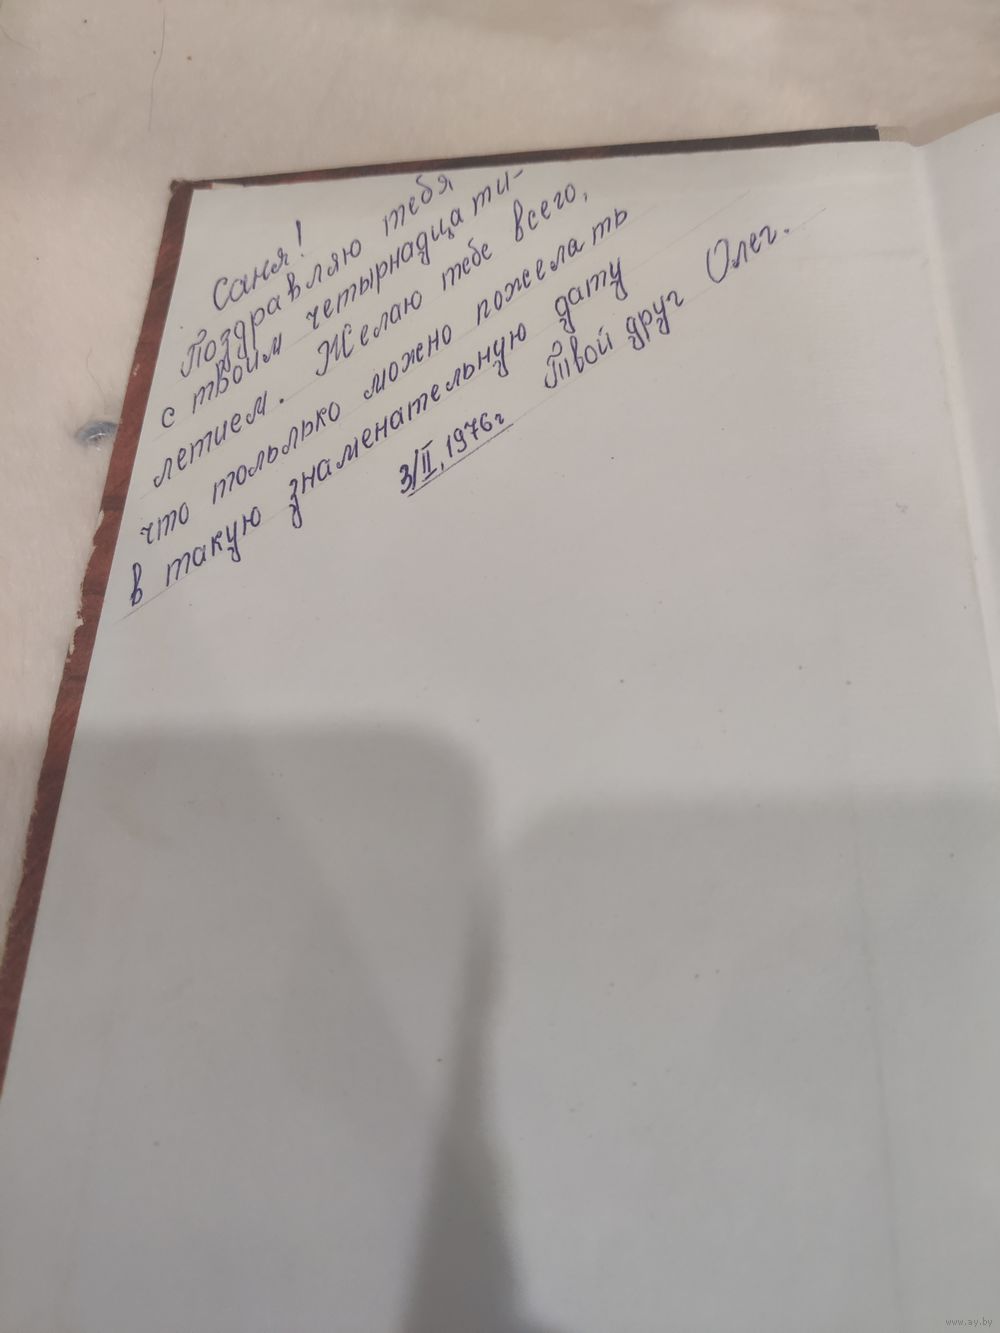 Саня!
Поздравляю тебя
с твоим четырнадцати-
летием. Желаю тебе всего,
что тольлько можно пожелать
в такую знаменательную дату
3/II, 1976г Твой друг Олег.
www.ay.by